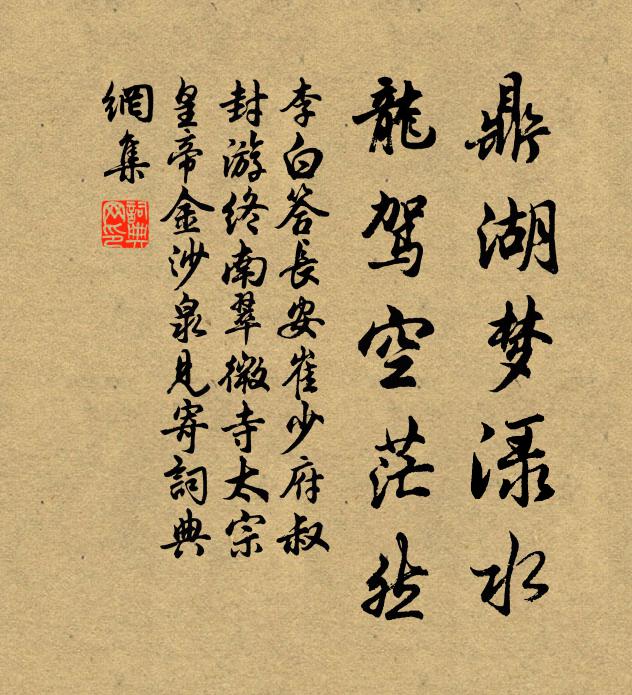 鼎湖梦渌水
龍驾空茫然
李白答長安崔少府叔
封游终南翠微寺太宗
皇帝金沙泉見寄詞典
網集
詞典
网印